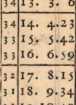 31 13. 3. 6
32 14. 4. 23
33 15. 5. 42
34 16. 6. 59
31 17. 8. 15
32 18. 9. 34